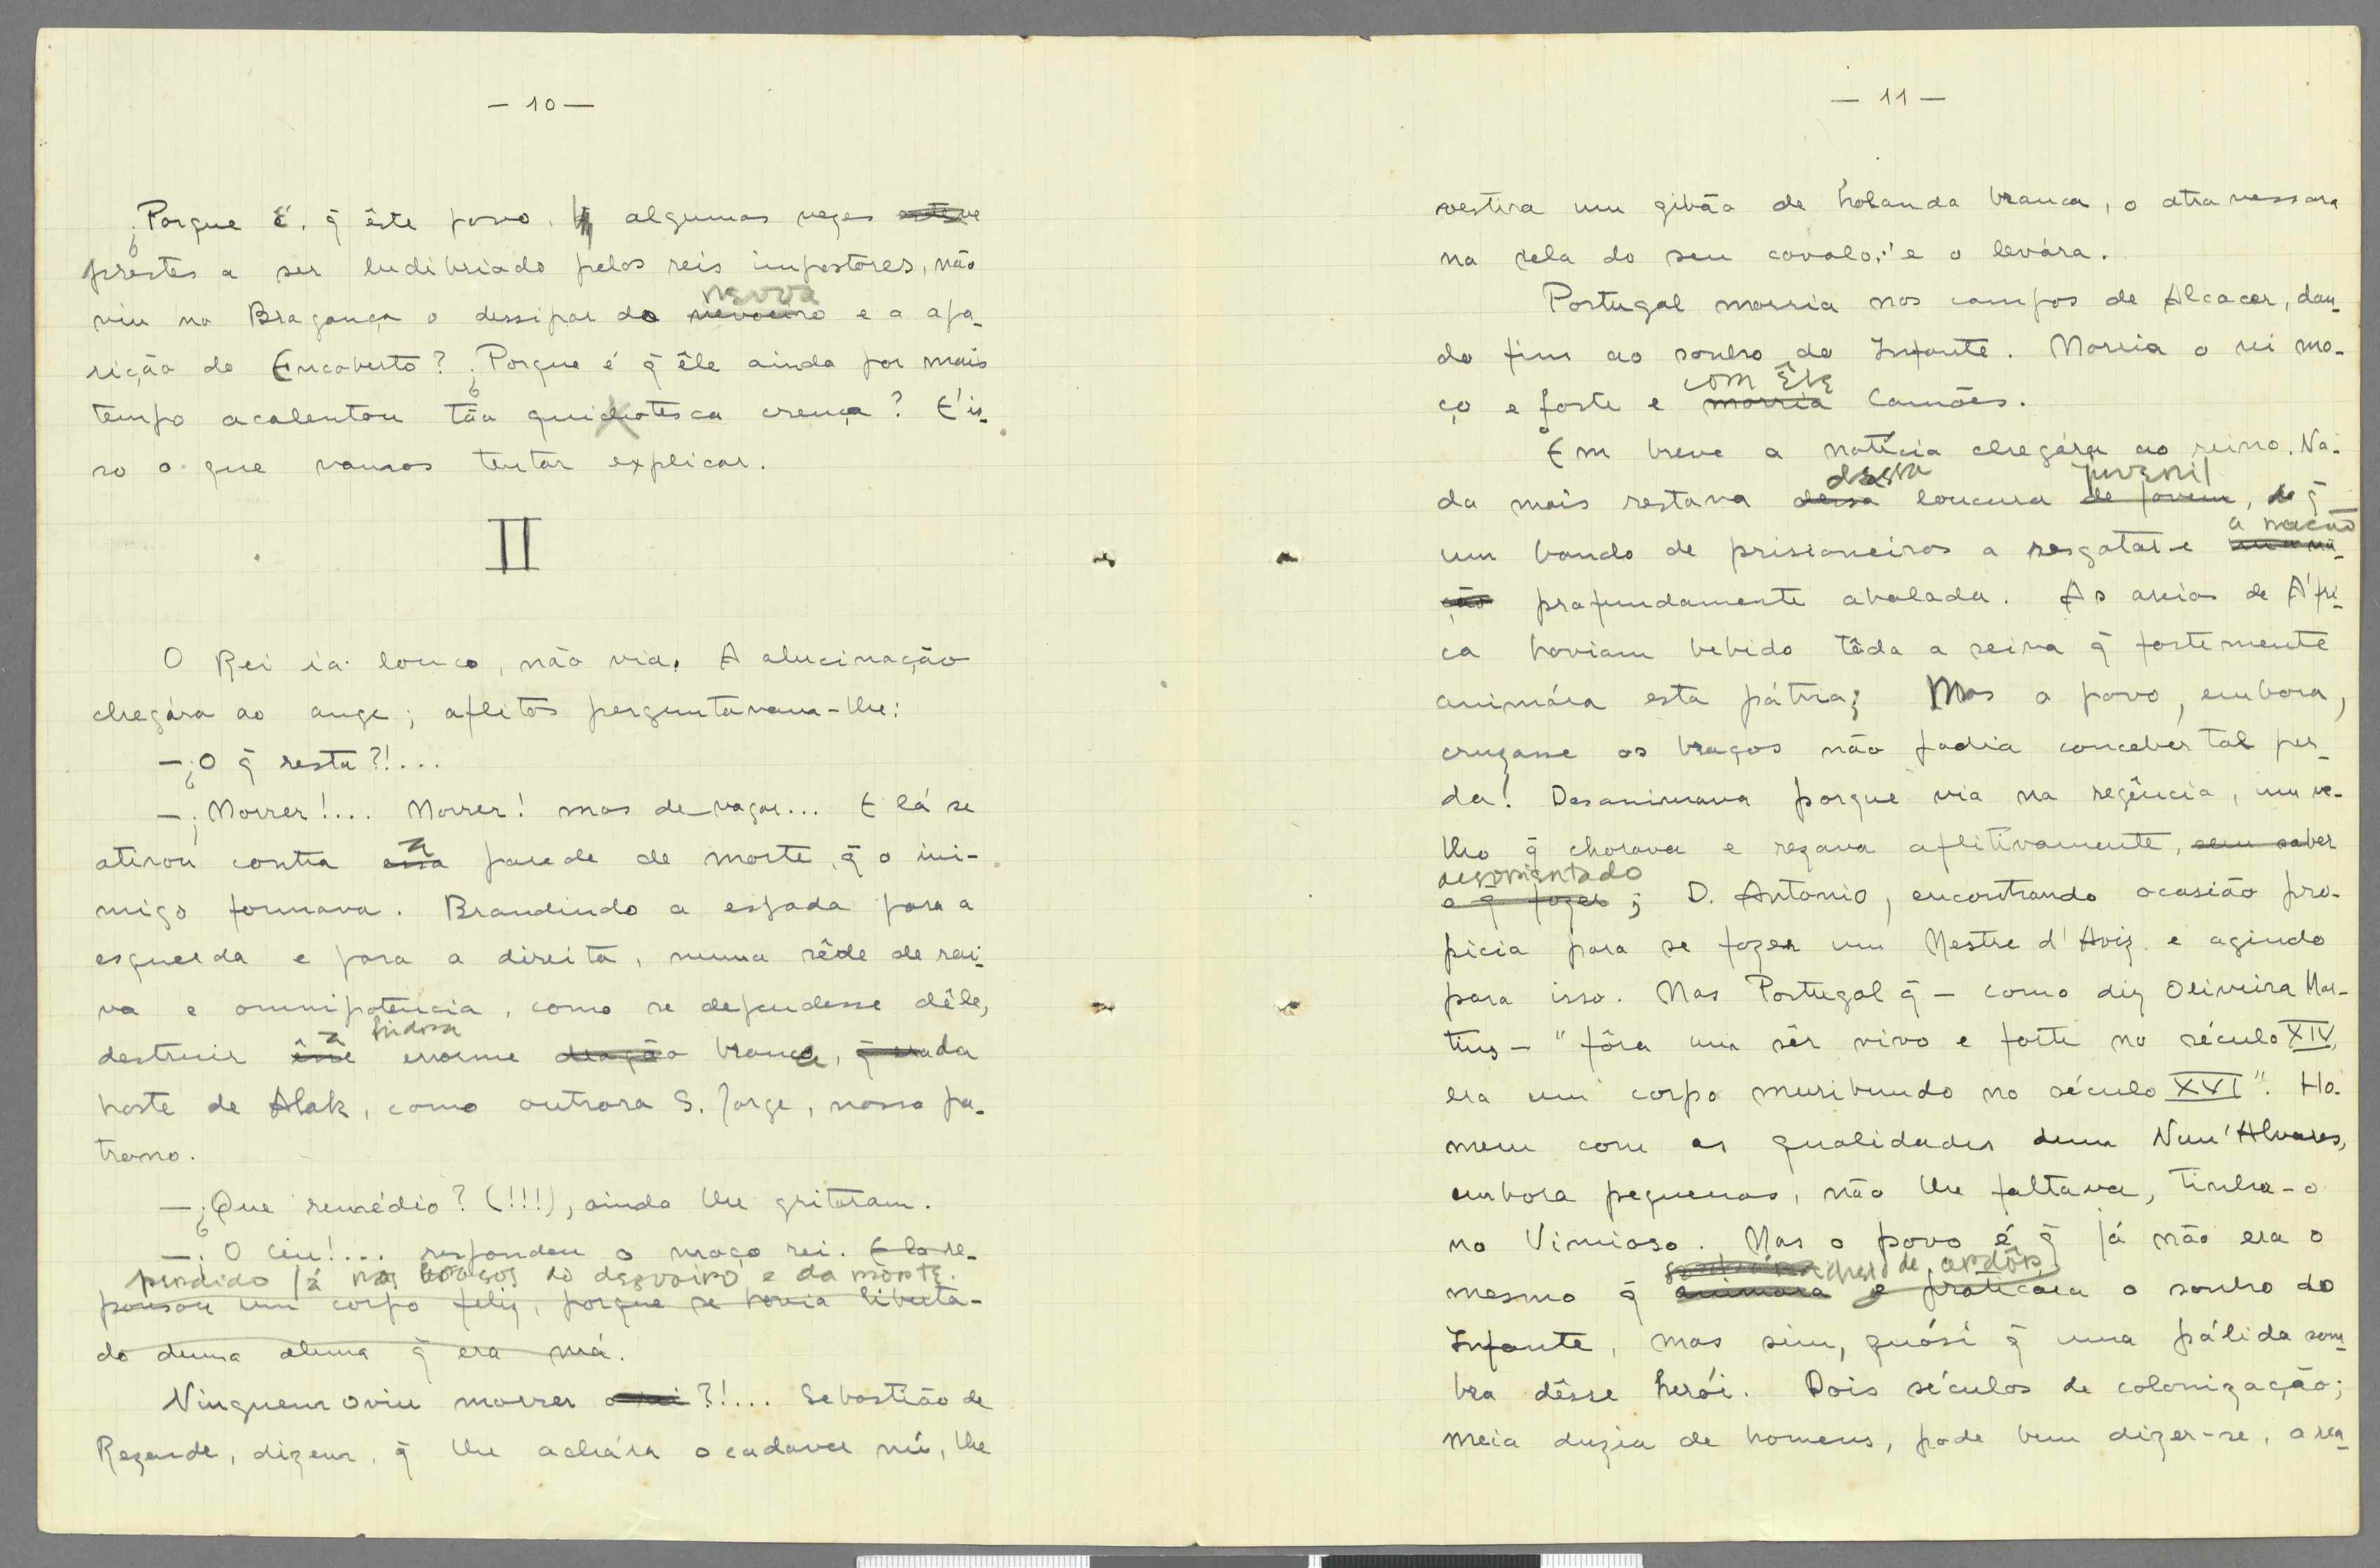 — 10 —
¿Porque é q̃ êste povo, q̃ algumas vezes esteve
prestes a ser ludibriado pelos reis impostores, não
nevoa
viu no Bragança o dessipar do nevoeiro e a apa-
rição do Encoberto? ¿Porque é q̃ êle ainda por mais
tempo acalentou tão quichotesca crença? E' is-
so o que vamos tentar explicar.
II
O Rei ia louco, não via. A alucinação
chegára ao auge; aflitos perguntavam-lhe:
—¿O q̃ resta?!...
—¡Morrer!... Morrer! mas devagar... E lá se
a
atirou contra essa parede de morte, q̃ o ini-
migo formava. Brandindo a espada para a
esquerda e para a direita, numa sêde de rai-
va e omnipotencia, como se dependesse dêle,
a hidra
destruir êsse enorme dragão branca, q̃ era da
hoste de Alak, como outrora S. Jorge, nosso pa-
trono.
—¿Que remédio? (!!!), ainda lhe gritaram.
—¡O Ceu!... respondeu o moço rei. E lá re-
perdido já nos braços do desvairo e da morte.
pousou um corpo feliz, porque se havia liberta-
do duma alma q̃ era má.
Ninguem o viu morrer o rei?!... Sebastião de
Rezende, dizem, q̃ lhe achára o cadaver nú, lhe
— 11 —
vestira um gibão de holanda branca, o atravessara
na sela do seu cavalo, e o levára.
Portugal morria nos campos de Alcacer, dan-
do fim ao sonho do Infante. Morria o rei mo-
com êle
ço e forte e morria Camões.
Em breve a notícia chegára ao reino. Na-
dessa juvenil
da mais restava dessa loucura de jovem, do q̃
a nação
um bando de prisioneiros a resgatar e uma na-
ção profundamente abalada. As areias de Áfri-
ca haviam bebido tôda a seiva q̃ fortemente
animára esta pátria; Mas o povo, embora,
cruzasse os braços não podia conceber tal per-
da! Desanimava porque via na regência, um ve-
lho q̃ chorava e rezava aflitivamente, sem saber
desorientado
o q̃ fazer; D. Antonio, encontrando ocasião pro-
picia para se fazer um Mestre d'Aviz e agindo
para isso. Mas Portugal q̃ — como diz Oliveira Mar-
tins — "fôra um sêr vivo e forte no século XIV,
era um corpo muribundo no século XVI". Ho-
mem com as qualidades dum Nun'Alvares,
embora pequenas, não lhe faltava, tinha-o
no Vimioso. Mas o povo é q̃ já não era o
cheio de ardôr,
mesmo q̃ animara e praticara o sonho do
Infante, mas sim, quási q̃ uma pálida som-
bra dêsse herói. Dois séculos de colonização;
meia duzia de homens, pode bem dizer-se, a rea-